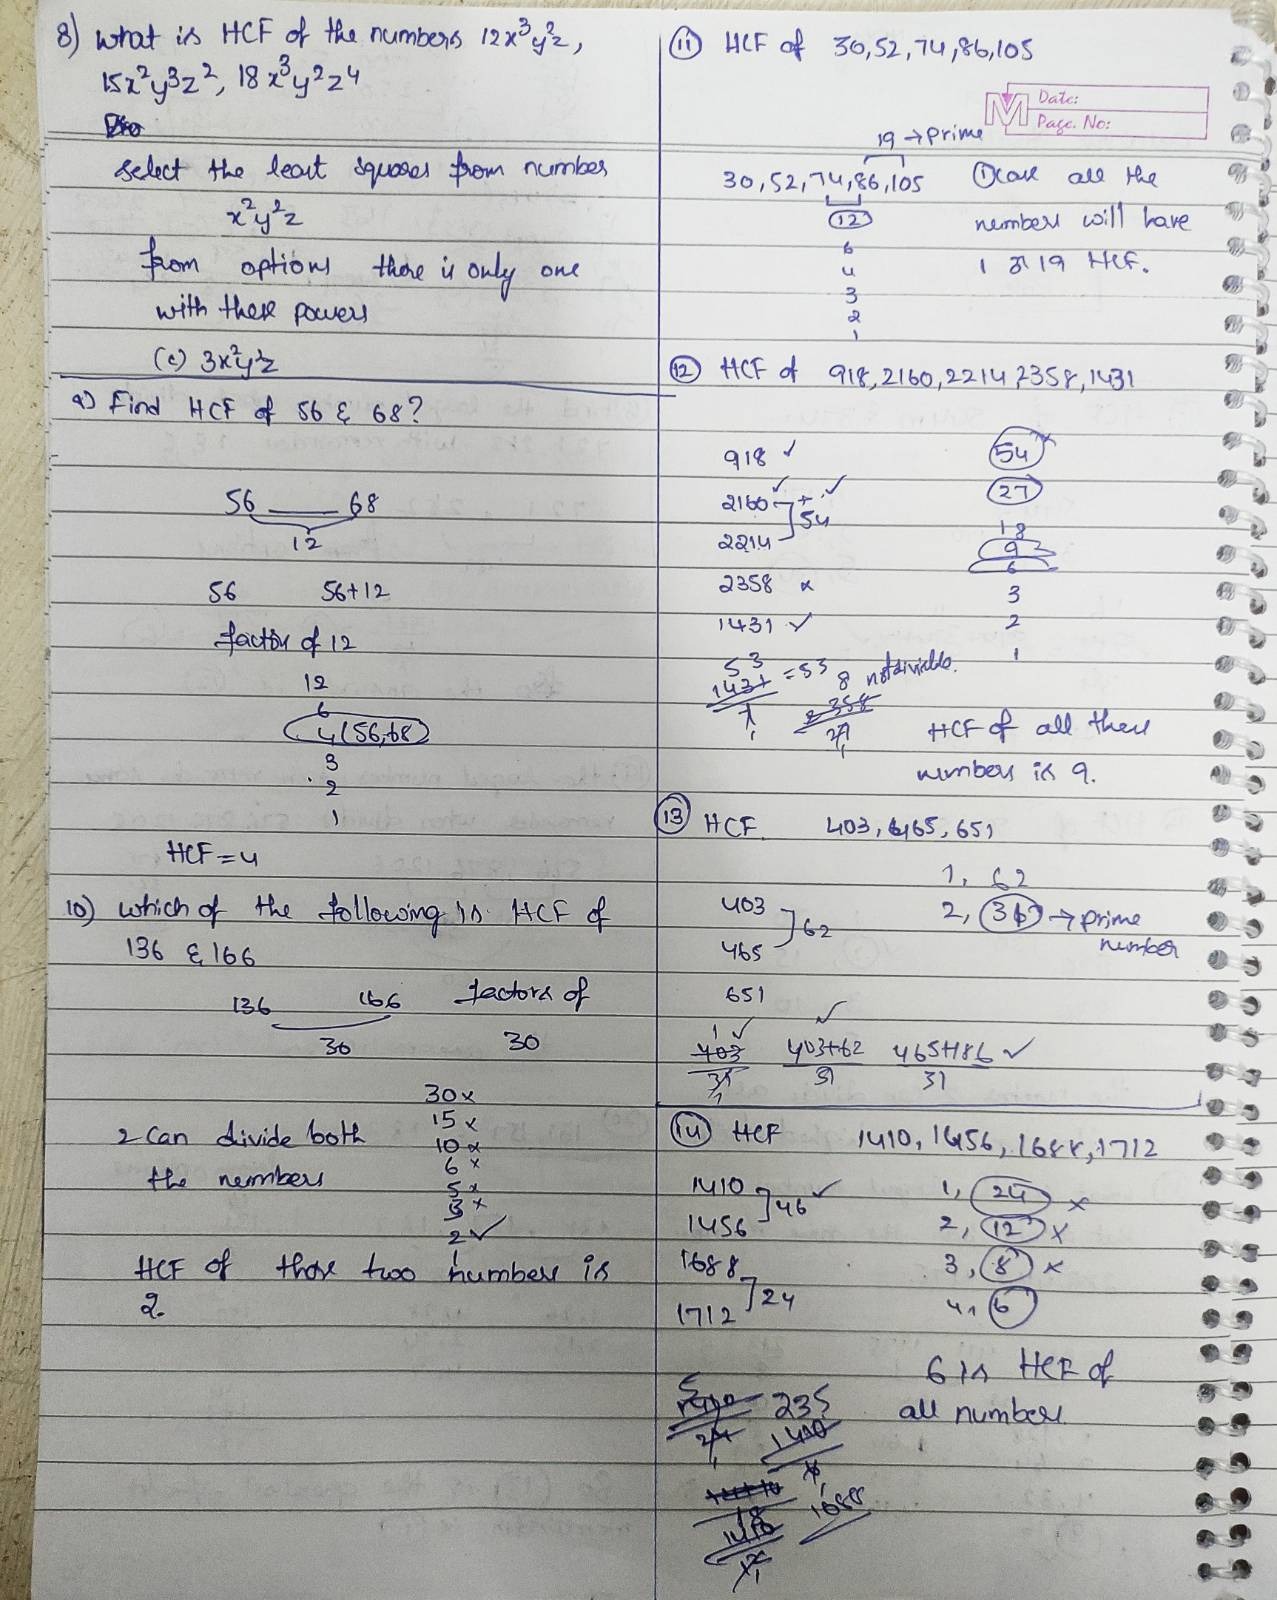 8) what is HCF of the numbers 12x³y²z,
15x²y³z², 18x³y²z⁴
select the least squares from number
x²y²z
from options there is only one
with these powers
(c) 3x²y²z
9) Find HCF of 56 & 68?
56 68
12
56 56+12
factor of 12
12
6
4(56,68)
3
2
1
HCF = 4
10) which of the following is HCF of
136 & 166
136 166 factors of
30 30
30 x
15 x
2 can divide both
10 x
the numbers
6 x
5 x
3 x
2 ✓
1
HCF of those two numbers is
2.
11 HCF of 30,52,74,86,105
M Date:
Page. No:
19 → prime
30,52,74,86,105
all the
12
numbers will have
6
1 or 19 HCF.
4
3
2
1
12 HCF of 918,2160,2214,2358,1431
918 ✓ 54 x
2160 ✓ 27
54
2214 18
9
6
2358 x 3
1431 ✓ 2
1
53
1431 = 53 8 not divisible.
2358
27
HCF of all these
numbers is 9.
13 HCF 403, 465, 651
1, 62
403 2, 31 → prime
number
62
465
651
403 ✓ 403+62 ✓ 465+186 ✓
31 31 31
14 HCF 1410, 1456, 1688, 1712
1410 1, 24 x
46 ✓
1456 2, 12 x
1688 3, 8 x
24
1712 4, 6
6 is HCF of
all numbers.
235
1410
24
1410
1688